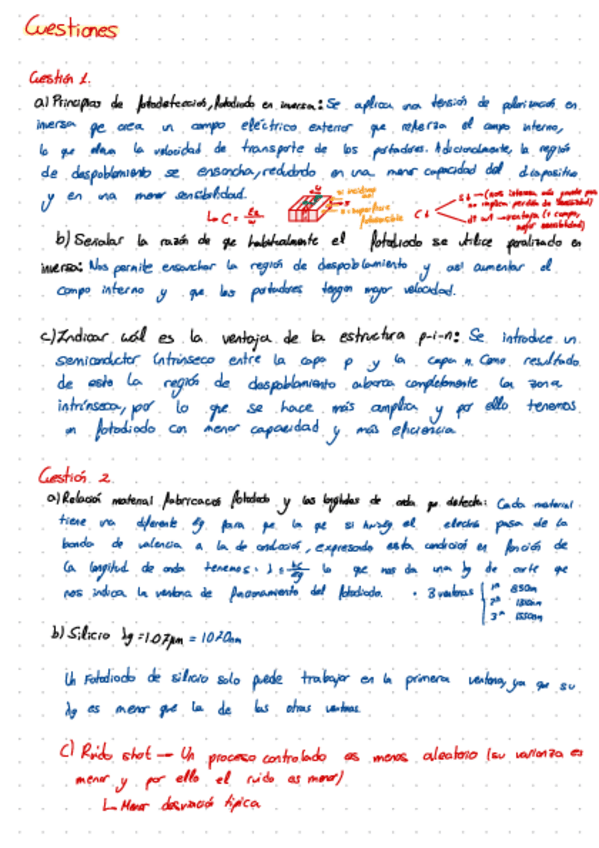 Cuestiones
Cuestión 1.
a) Principios de fotodetección, fotodiodo en inversa: Se aplica una tensión de polarización en
inversa que crea un campo eléctrico exterior que refuerza el campo interno,
lo que eleva la velocidad de transporte de los portadores. Adicionalmente, la región
de despoblamiento se ensancha, reduciendo en una menor capacidad del dispositivo
y en una menor sensibilidad.
↳ C = εA/w
C↓
b) Señalar la razón de que habitualmente el fotodiodo se utilice polarizado en
inversa: Nos permite ensanchar la región de despoblamiento y así aumentar el
campo interno y que los portadores tengan mayor velocidad.
c) Indicar cuál es la ventaja de la estructura p-i-n: Se introduce un
semiconductor intrínseco entre la capa p y la capa n. Como resultado
de esto la región de despoblamiento abarca completamente la zona
intrínseca, por lo que se hace más amplia y por ello tenemos
un fotodiodo con menor capacidad y más eficiencia
Cuestión 2.
a) Relación material fabricación fotodiodo y las longitudes de onda que detecta: Cada material
tiene una diferente Eg para que la que si hν>Eg el electrón pasa de la
banda de valencia a la de conducción, expresando esta condición en función de
la longitud de onda tenemos: λ = hc/Eg lo que nos da una λg de corte que
nos indica la ventana de funcionamiento del fotodiodo. · 3 ventanas
1ª 850nm
2ª 1300nm
3ª 1550nm
b) Silicio λg = 1.07μm = 1070nm
Un Fotodiodo de silicio solo puede trabajar en la primera ventana, ya que su
λg es menor que la de las otras ventanas.
c) Ruido shot → Un proceso controlado es menos aleatorio (su varianza es
menor y por ello el ruido es menor)
↳ Menor desviación típica